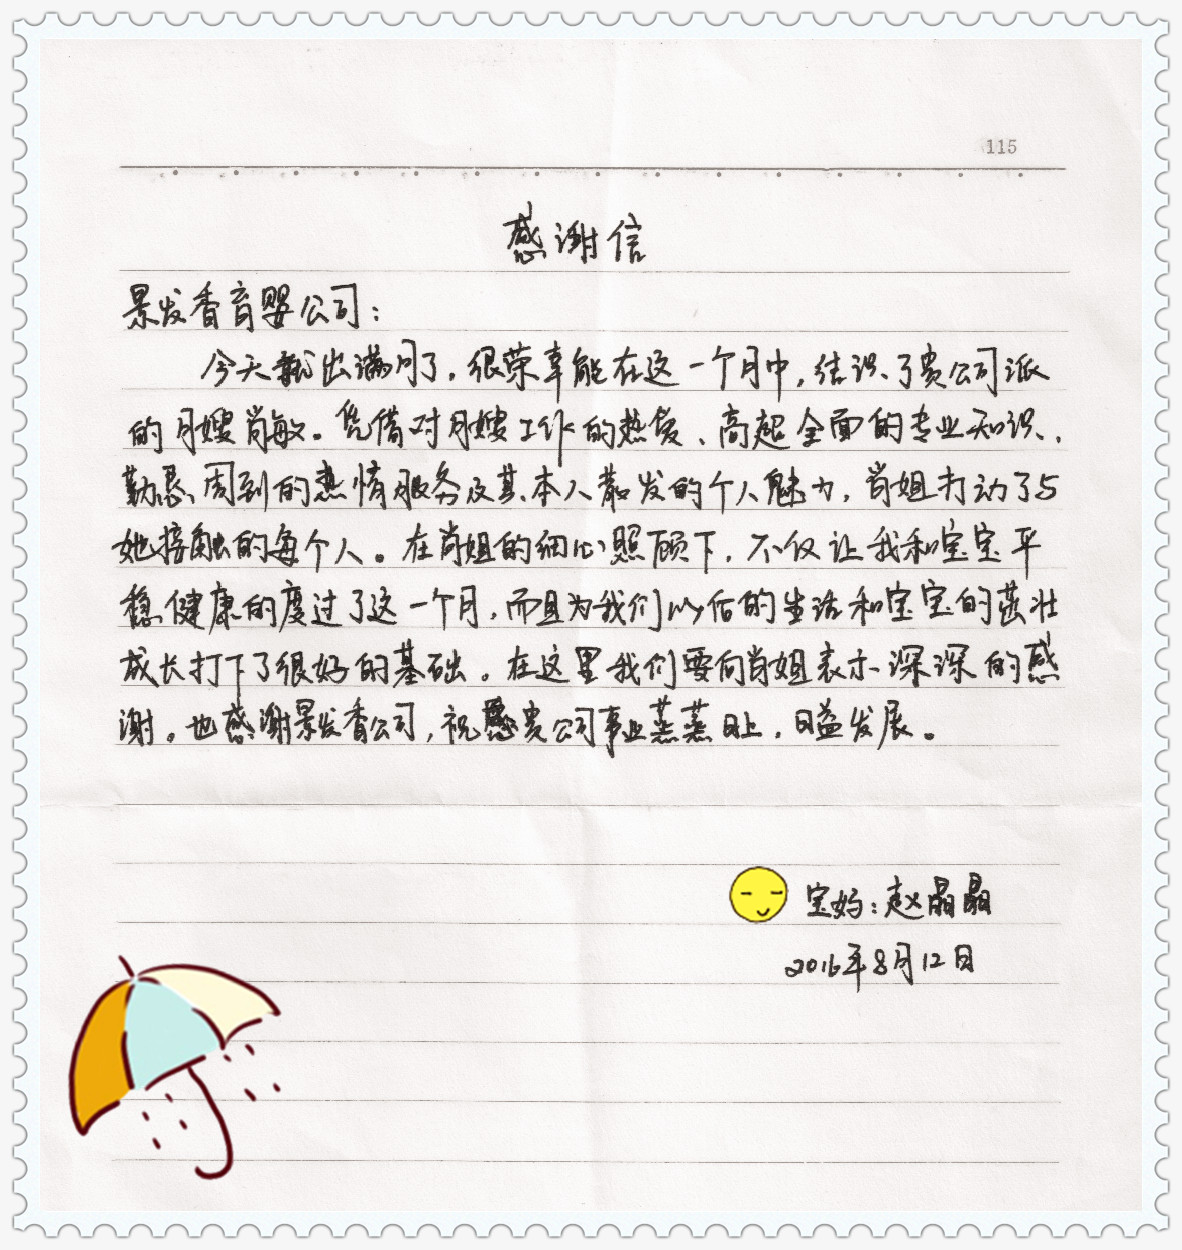 115
感谢信
景发香育婴公司:
今天我出满月了,很荣幸能在这一个月中,结识了贵公司派
的月嫂肖敏。凭借对月嫂工作的热爱、高超全面的专业知识、
勤恳、周到的热情服务及其本人散发的个人魅力,肖姐打动了与
她接触的每个人。在肖姐的细心照顾下,不仅让我和宝宝平
稳健康的度过了这一个月,而且为我们以后的生活和宝宝的茁壮
成长打下了很好的基础。在这里我们要向肖姐表示深深的感
谢。也感谢景发香公司,祝贵公司事业蒸蒸日上,日益发展。
宝妈:赵晶晶
2016年8月12日